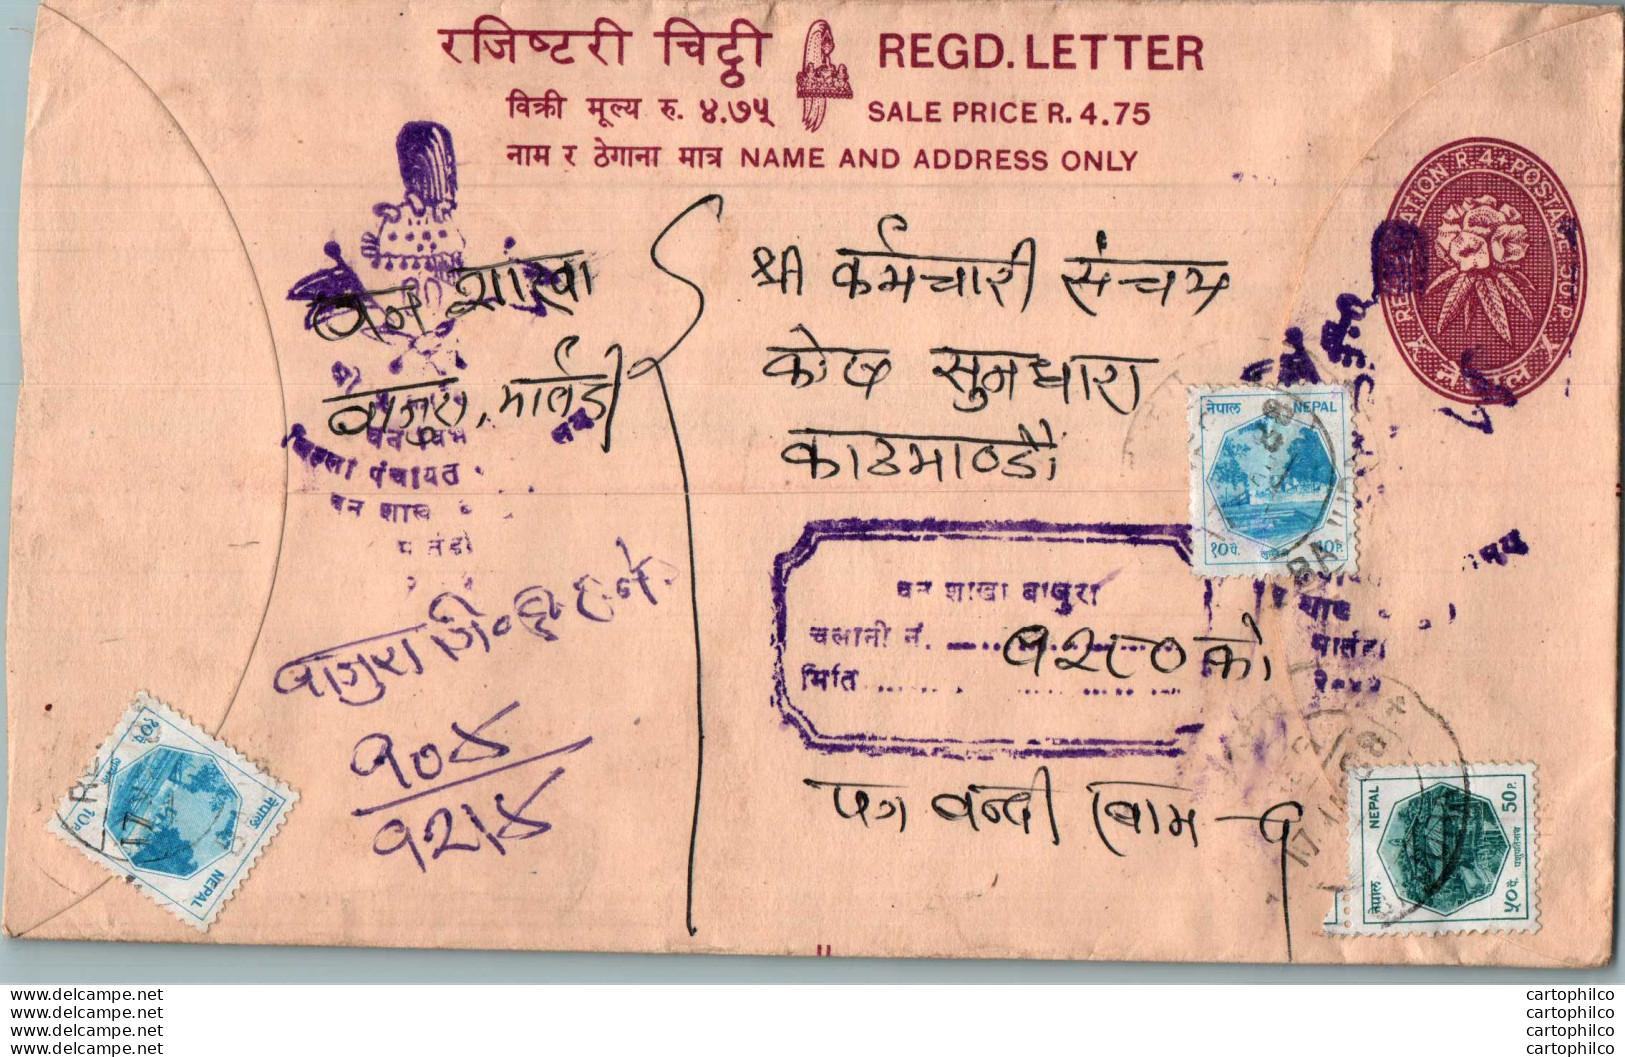 रजिष्टरी चिट्ठी REGD. LETTER
विक्री मूल्य रु. ४.७५ SALE PRICE R. 4.75
नाम र ठेगाना मात्र NAME AND ADDRESS ONLY
नेपाल
वन शाखा
बाजुरा, मार्तडी
श्री कर्मचारी संचय
कोष सुनधारा
काठमाण्डौ
जिल्ला पंचायत
वन शाखा
नेपाल NEPAL
१० पै. 10P.
वन शाखा बाजुरा
चलानी नं. १२८० को
मिति
पत्र बन्दी खाम - १
बाजुरा
१०४
१२।४
नेपाल NEPAL
10P.
NEPAL 50P.
नेपाल ५० पै.
www.delcampe.net cartophilco
www.delcampe.net cartophilco
www.delcampe.net cartophilco
www.delcampe.net cartophilco